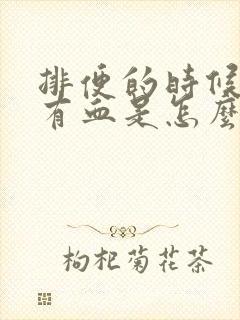 排便的時候
有血是怎麼
枸杞菊花茶